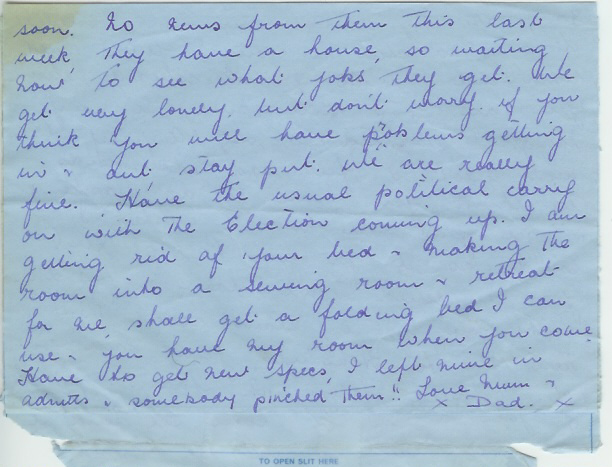 soon. No news from them this last
week, they have a house, so waiting
now to see what jobs they get. We
get very lonely, but don't worry, if you
think you will have problems getting
in & out stay put. we are really
fine. Have the usual political carry
on with the Election coming up. I am
getting rid of your bed & making the
room into a sewing room & retreat
for me, shall get a folding bed I can
use & you have my room when you come.
Have to get new specs, I left mine in
& somebody pinched them!! Love Mum &
x Dad. x
TO OPEN SLIT HERE